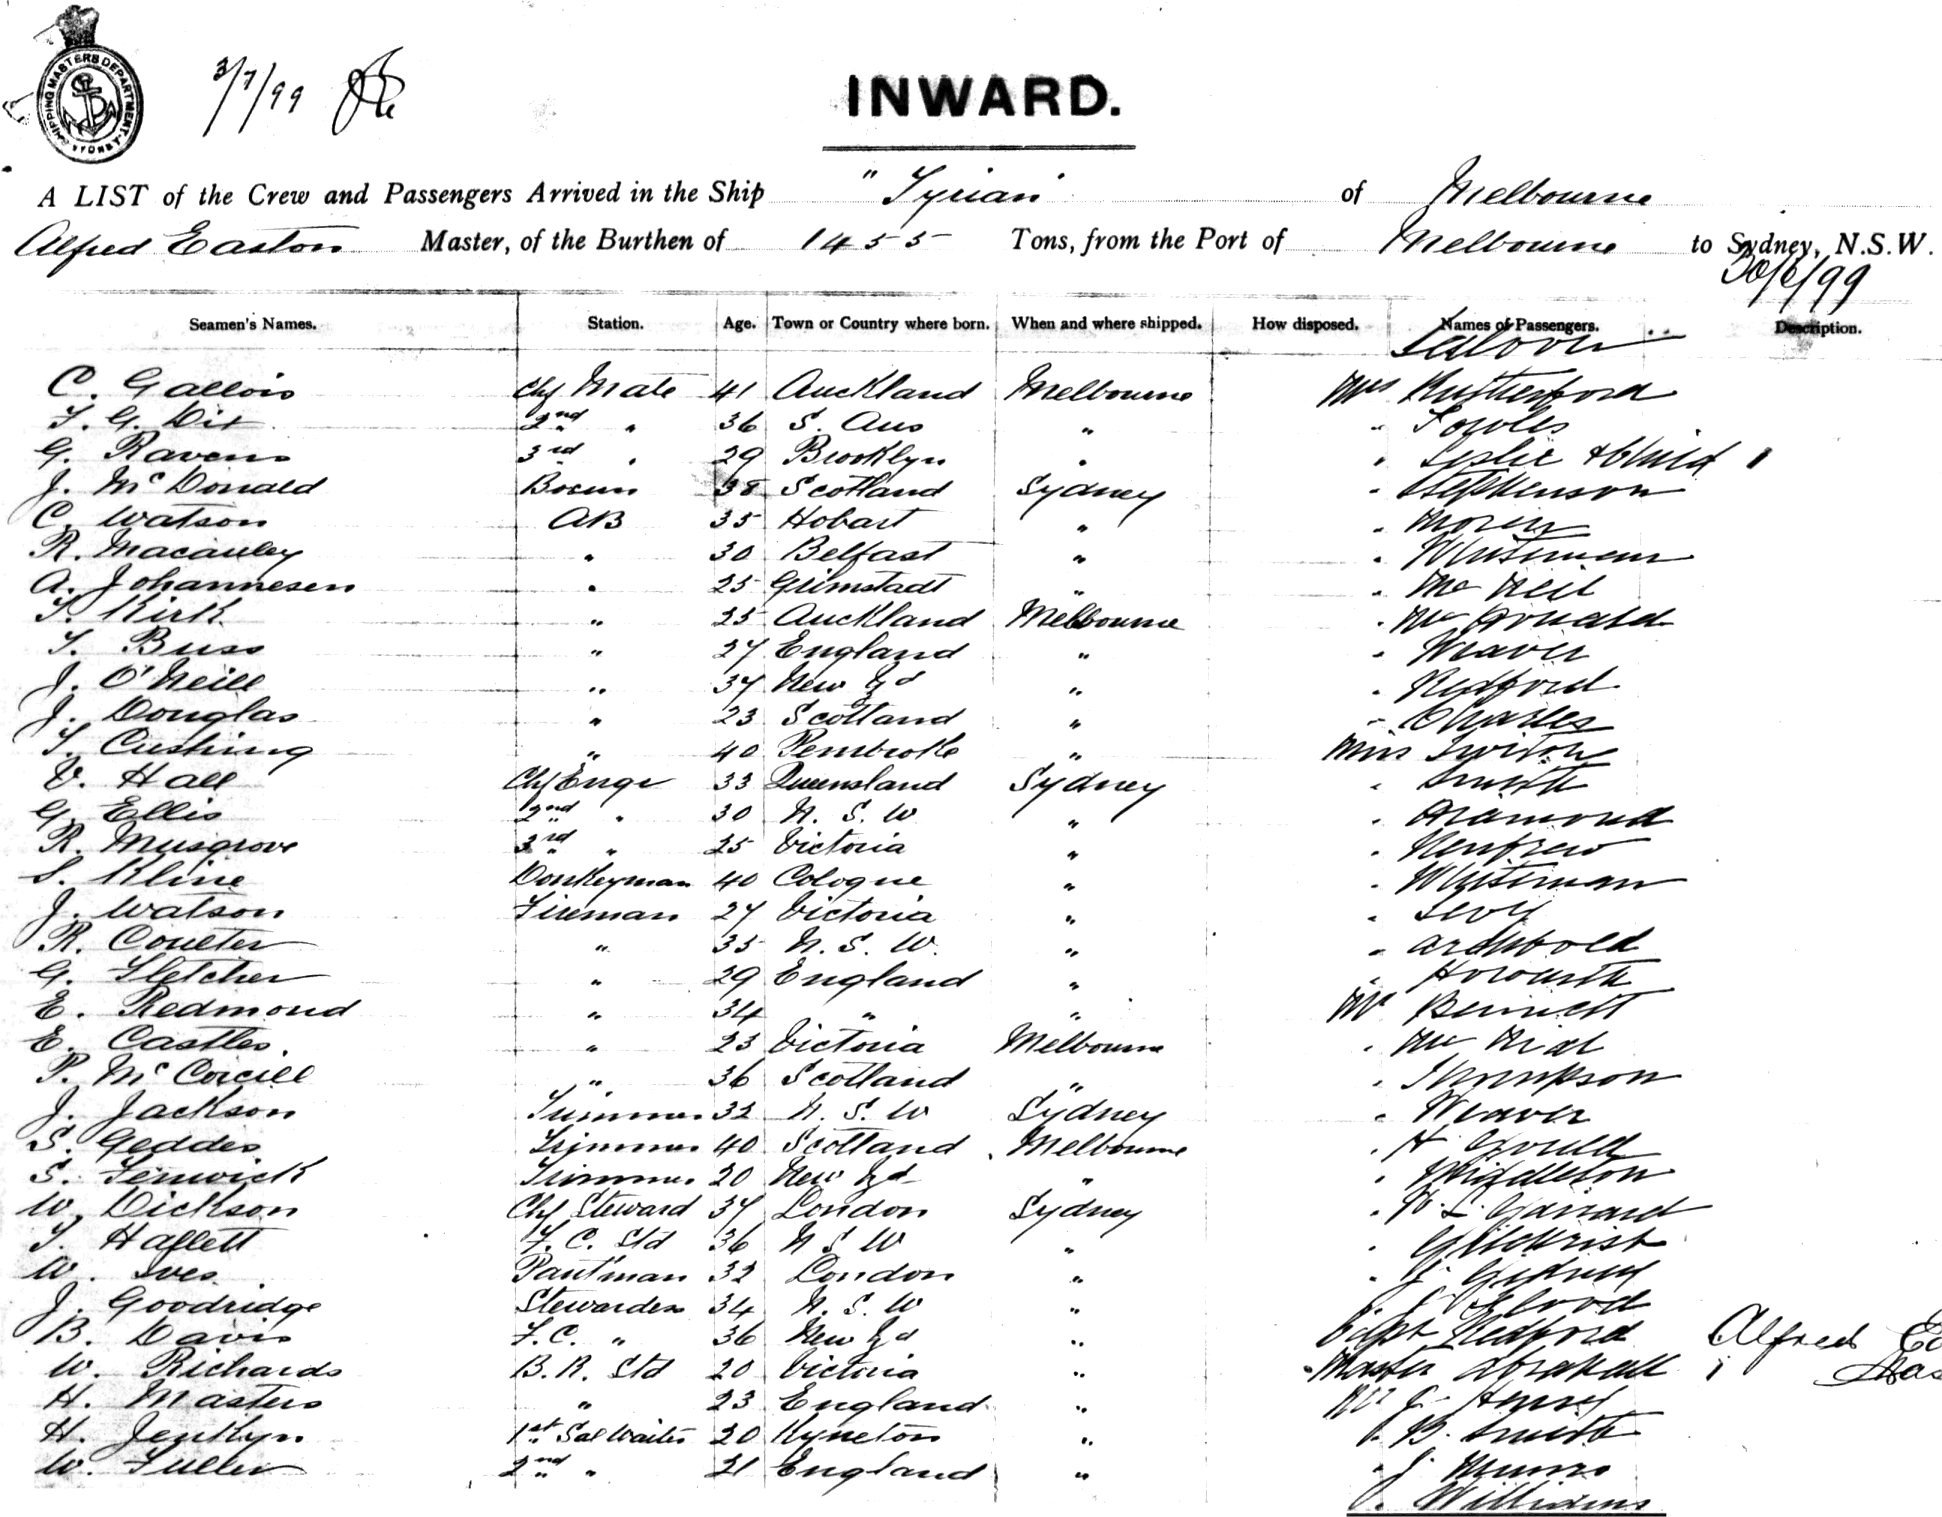 SHIPPING MASTERS DEPARTMENT SYDNEY
3/7/99
INWARD.
A LIST of the Crew and Passengers Arrived in the Ship "Tyrian" of Melbourne
Alfred Easton Master, of the Burthen of 1455 Tons, from the Port of Melbourne to Sydney, N.S.W.
30/6/99
Seamen's Names. Station. Age. Town or Country where born. When and where shipped. How disposed. Names of Passengers. Description.
Saloon
C. Gallois Chf Mate 41 Auckland Melbourne Mrs Rutherford
T. G. Dix 2nd " 36 S. Aus " " Fowles
G. Ravens 3rd " 29 Brooklyn " " Leslie & Child 1
J. McDonald Bosun 38 Scotland Sydney " Stephenson
C. Watson AB 35 Hobart " "
R. Macauley " 30 Belfast " " Whiteman
A. Johannesen " 25 Grimstadt " " McNeil
T. Kirk " 25 Auckland Melbourne " McDonald
T. Buss " 27 England " " Weaver
J. O'Neill " 37 New Zd " " Redford
J. Douglas " 23 Scotland " " Charles
T. Cushing " 40 Pembroke " Miss
V. Hall Chf Engr 33 Queensland Sydney " Smith
G. Ellis 2nd " 30 N. S. W " " Diamond
R. Musgrove 3rd " 25 Victoria " " Renfrew
S. Kline Donkeyman 40 Cologne " " Whiteman
J. Watson Fireman 27 Victoria " " Levy
R. Coulter " 35 N. S. W. " " Archbold
G. Fletcher " 29 England " " Howarth
E. Redmond " 34 " " Mr Bennett
E. Castles. " 23 Victoria Melbourne "
P. McCorcill " 36 Scotland " " Thompson
J. Jackson Trimmer 32 N. S. W Sydney " Weaver
S. Geddes Trimmer 40 Scotland Melbourne " H Gould
S. Fenwick Trimmer 20 New Zd " " Middleton
W. Dickson Chf Steward 37 London Sydney " W. L. Garrard
T. Haflett F. C. Std 36 N S W " " Gilchrist
W. Ives. Pantman 32 London " " J
J. Goodridge Stewardess 34 N. S. W " " J Flood
B. Davis F. C. " 36 New Zd " Capt Redford Alfred
W. Richards B. R. Std 20 Victoria " Master 1
H. Masters " 23 England " Mr J. Henry
H. Jenkyn 1st Sal Waiter 20 Kyneton " " B. Smith
W. Fuller 2nd " 21 England " " J Munro
" Williams